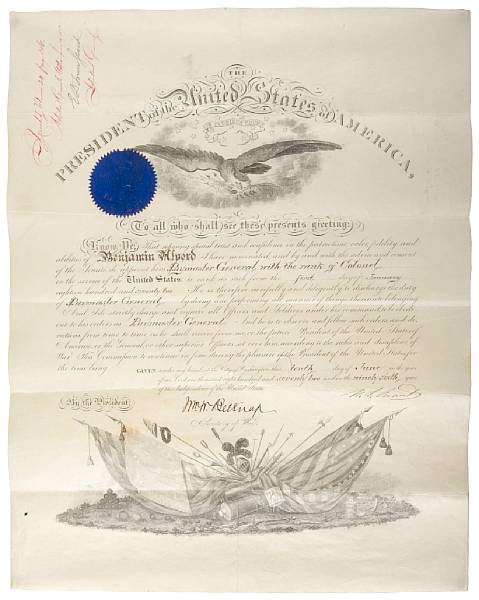 THE
PRESIDENT of the United States of AMERICA,
To all who shall see these presents greeting:
Know Ye, That reposing special trust and confidence in the patriotism, valor, fidelity and
abilities of Benjamin Alvord I have nominated and by and with the advice and consent
of the Senate do appoint him Paymaster General, with the rank of Colonel
in the service of the United States to rank as such from the first day of January
eighteen hundred and seventy two He is therefore carefully and diligently to discharge the duty
of Paymaster General by doing and performing all manner of things thereunto belonging.
And I do strictly charge and require all Officers and Soldiers under his command to be obedi-
ent to his orders as Paymaster General And he is to observe and follow such orders and di-
rections from time to time as he shall receive from me, or the future President of the United States of
America, or the General, or other superior Officers set over him according to the rules and discipline of
War. This Commission to continue in force during the pleasure of the President of the United States for
the time being.
GIVEN under my hand at the City of Washington this tenth day of June in the year
of our Lord one thousand eight hundred and seventy two and in the ninety sixth year
of the Independence of the United States.
By the President
U. S. Grant
Wm W Belknap
Secretary of War.